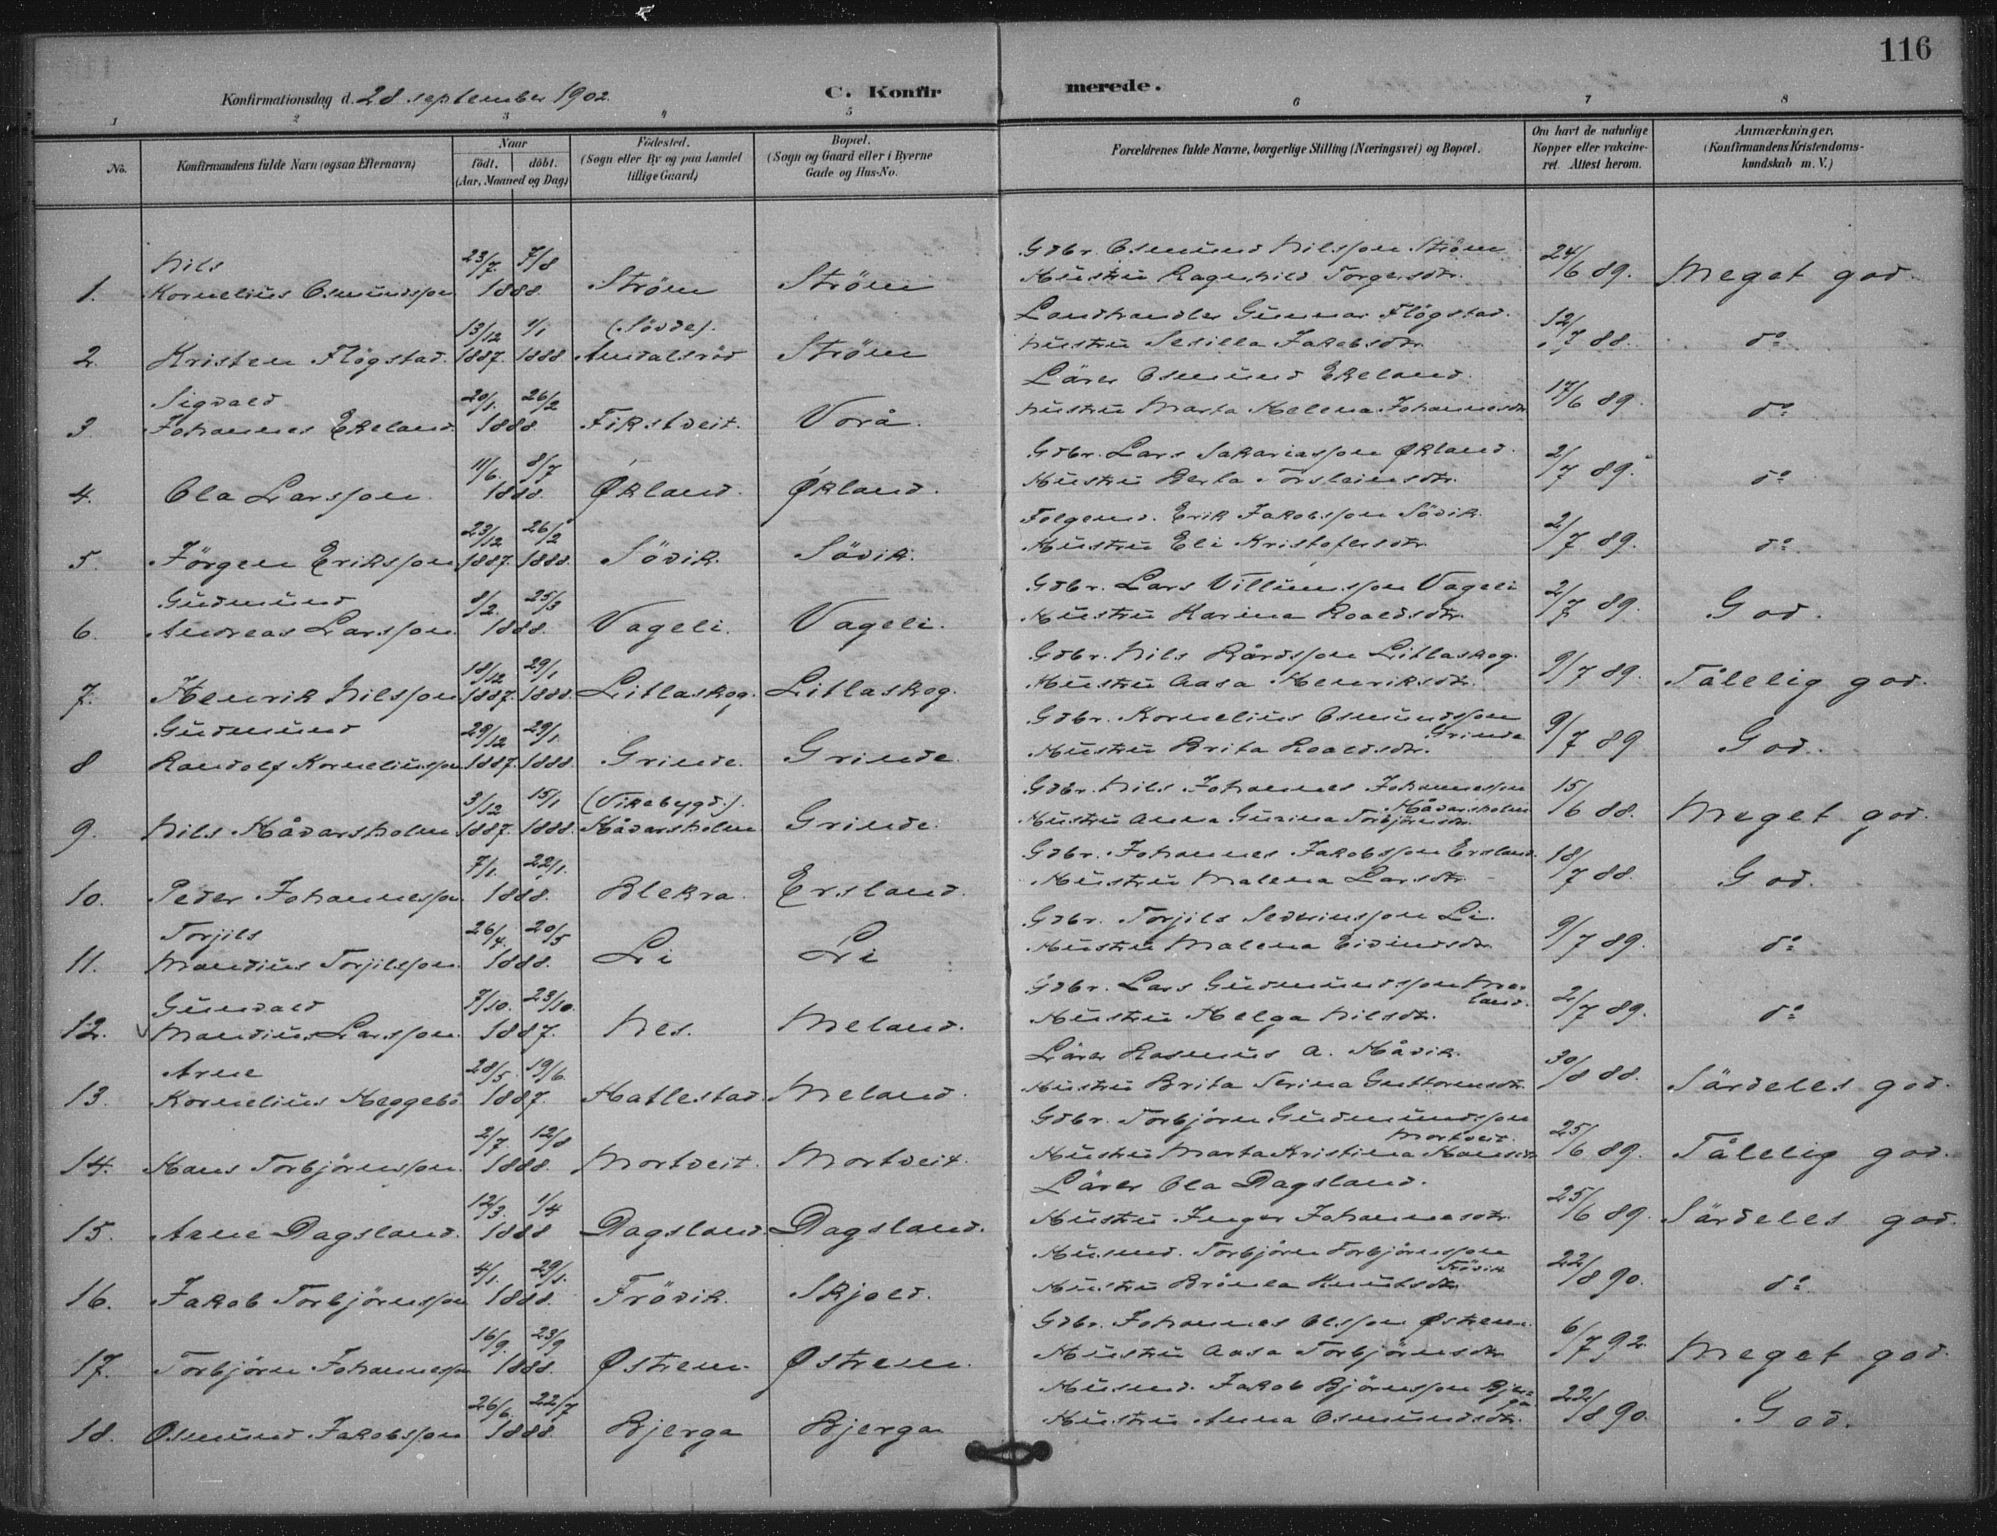 116
Konfirmationsdag d. 28 september 1902.
C. Konfirmerede.
1 2 3 4 5 6 7 8
No.
Konfirmandens fulde Navn (ogsaa Efternavn)
Naar
födt. döbt.
(Aar, Maaned og Dag)
Födested.
(Sogn eller By og paa Landet
tillige Gaard)
Bopæl.
(Sogn og Gaard eller i Byerne
Gade og Hus-No.
Forældrenes fulde Navne, borgerlige Stilling (Næringsvei) og Bopæl.
Om havt de naturlige
Kopper eller vakcine-
ret. Attest herom.
Anmærkninger.
(Konfirmandens Kristendoms-
kundskab m. V.)
Nils 23/7 7/8 Gdbr. Osmund Nilsson Ström
1. Kornelius Osmundsson 1888. Ström Ström Hustru Ragnhild Torgersdtr. 24/6 89. Meget god.
13/12 1/1 (Søvde). Landhandler Gunnar Flögstad.
2. Kristen Flögstad. 1887. 1888. Amdalsrød Ström hustru Sesilia Jakobsdtr. 12/7 88. do
Sigvald 20/1. 26/2 Lärer Osmund Ekeland.
3. Johannes Ekeland. 1888. Fikstveit. Vorå. hustru Marta Helena Johannesdtr. 17/6 89. do
11/6. 8/7 Gdbr. Lars Sakariasson Økland.
4. Ola Larsson. 1888. Økland. Økland. Hustru Berta Torsteinsdtr. 2/7 89. do
23/12 26/2 Folgemd. Erik Jakobsson Sövik.
5. Jörgen Eriksson 1887. 1888. Sövik. Sövik. Hustru Eli Kristofersdtr. 2/7 89. do
Gudmund 8/2. 25/3 Gdbr. Lars Villumsson Vageli
6. Andreas Larsson. 1888. Vageli. Vageli. Hustru Karina Roaldsdtr. 2/7 89. God.
18/12 29/1 Gdbr. Nils Bårdsson Litlaskog.
7. Henrik Nilsson 1887. 1888. Litlaskog. Litlaskog. Hustru Aasa Henriksdtr. 9/7 89. Tålelig god.
Gudmund 29/12 29/1. Gdbr. Kornelius Osmundsson
Grinde
8 Randolf Korneliusson 1887. 1888. Grinde. Grinde. Hustru Brita Roaldsdtr. 9/7 89 God.
3/12 15/1 (Vikebygd.). Gdbr. Nils Johannes Johannesson
Håvarsholm
9. Nils Håvarsholm 1887. 1888. Håvarsholm Grinde. Hustru Anna Gurina Torbjörnsdtr. 15/6 88. Meget god.
7/1. 22/1. Gdbr. Johannes Jakobsson Ersland.
10. Peder Johannesson 1888. Blekra. Ersland. Hustru Malena Larsdtr. 18/7 88. God.
Torjils 26/4. 20/5 Gdbr. Torjils Severinsson Li.
11. Mandius Torjilsson. 1888. Li Li Hustru Malena Eivindsdtr. 9/7 89. do
Gunvald 7/10. 23/10. Gdbr. Lars Gudmundsson Me-
land.
12. Mandius Larsson. 1887. Nes. Meland. Hustru Helga Nilsdtr. 2/7 89. do
Arne 28/5. 19/6. Lärer Rasmus A. Håvik.
13. Kornelius Heggebö 1887. Hatlestad Meland. Hustru Brita Serina Guttormsdtr. 30/8 88. Särdeles god.
2/7. 12/8 Gdbr. Torbjörn Gudmundsson
Mortveit.
14. Hans Torbjörnsson. 1888. Mortveit. Mortveit. Hustru Marta Kristina Hansdtr 25/6 89. Tålelig god.
12/3. 1/4 Lärer Ola Dagsland.
15. Arne Dagsland. 1888 Dagsland. Dagsland. Hustru Inger Johannesdtr. 25/6 89. Särdeles god.
4/1. 29/1. Husmd. Torbjörn Torbjörnsson
Frövik
16. Jakob Torbjörnsson 1888. Frövik. Skjold. Hustru Knutsdtr. 22/8 90. do
16/9. 23/9 Gdbr. Johannes Olsson Østrem.
17. Torbjörn Johannesson 1888. Østrem. Østrem. Hustru Aasa Torbjörnsdtr 6/7 92 Meget god.
26/6. 22/7 Husmd. Jakob Björnsson Bjer-
ga
18. Osmund Jakobsson 1888. Bjerga Bjerga Hustru Anna Osmundsdtr. 22/8 90. God.